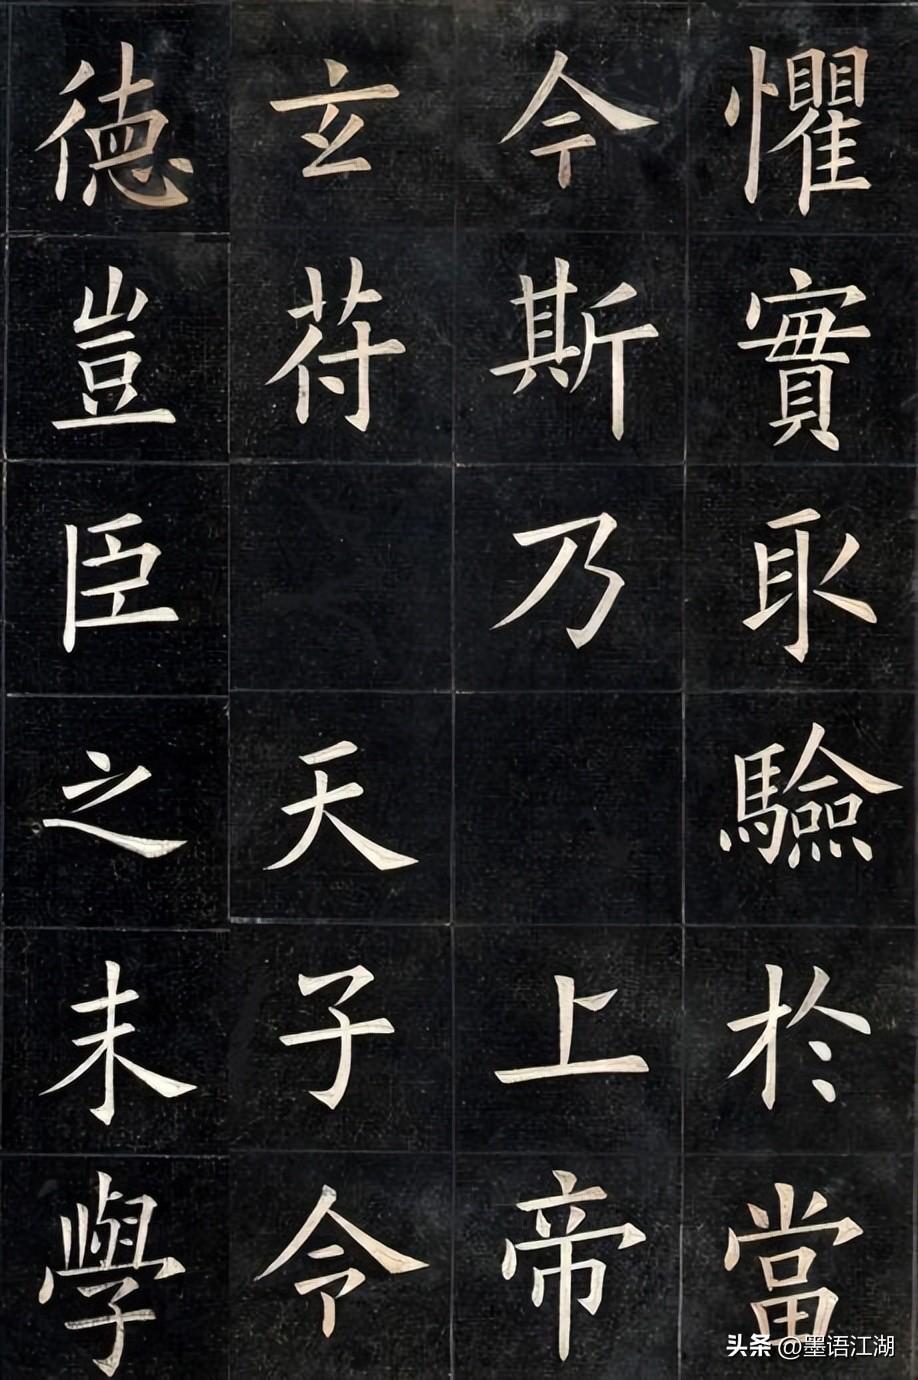 懼實取驗於當
今斯乃上帝
玄苻天子令
德豈臣之末學
头条 @墨语江湖